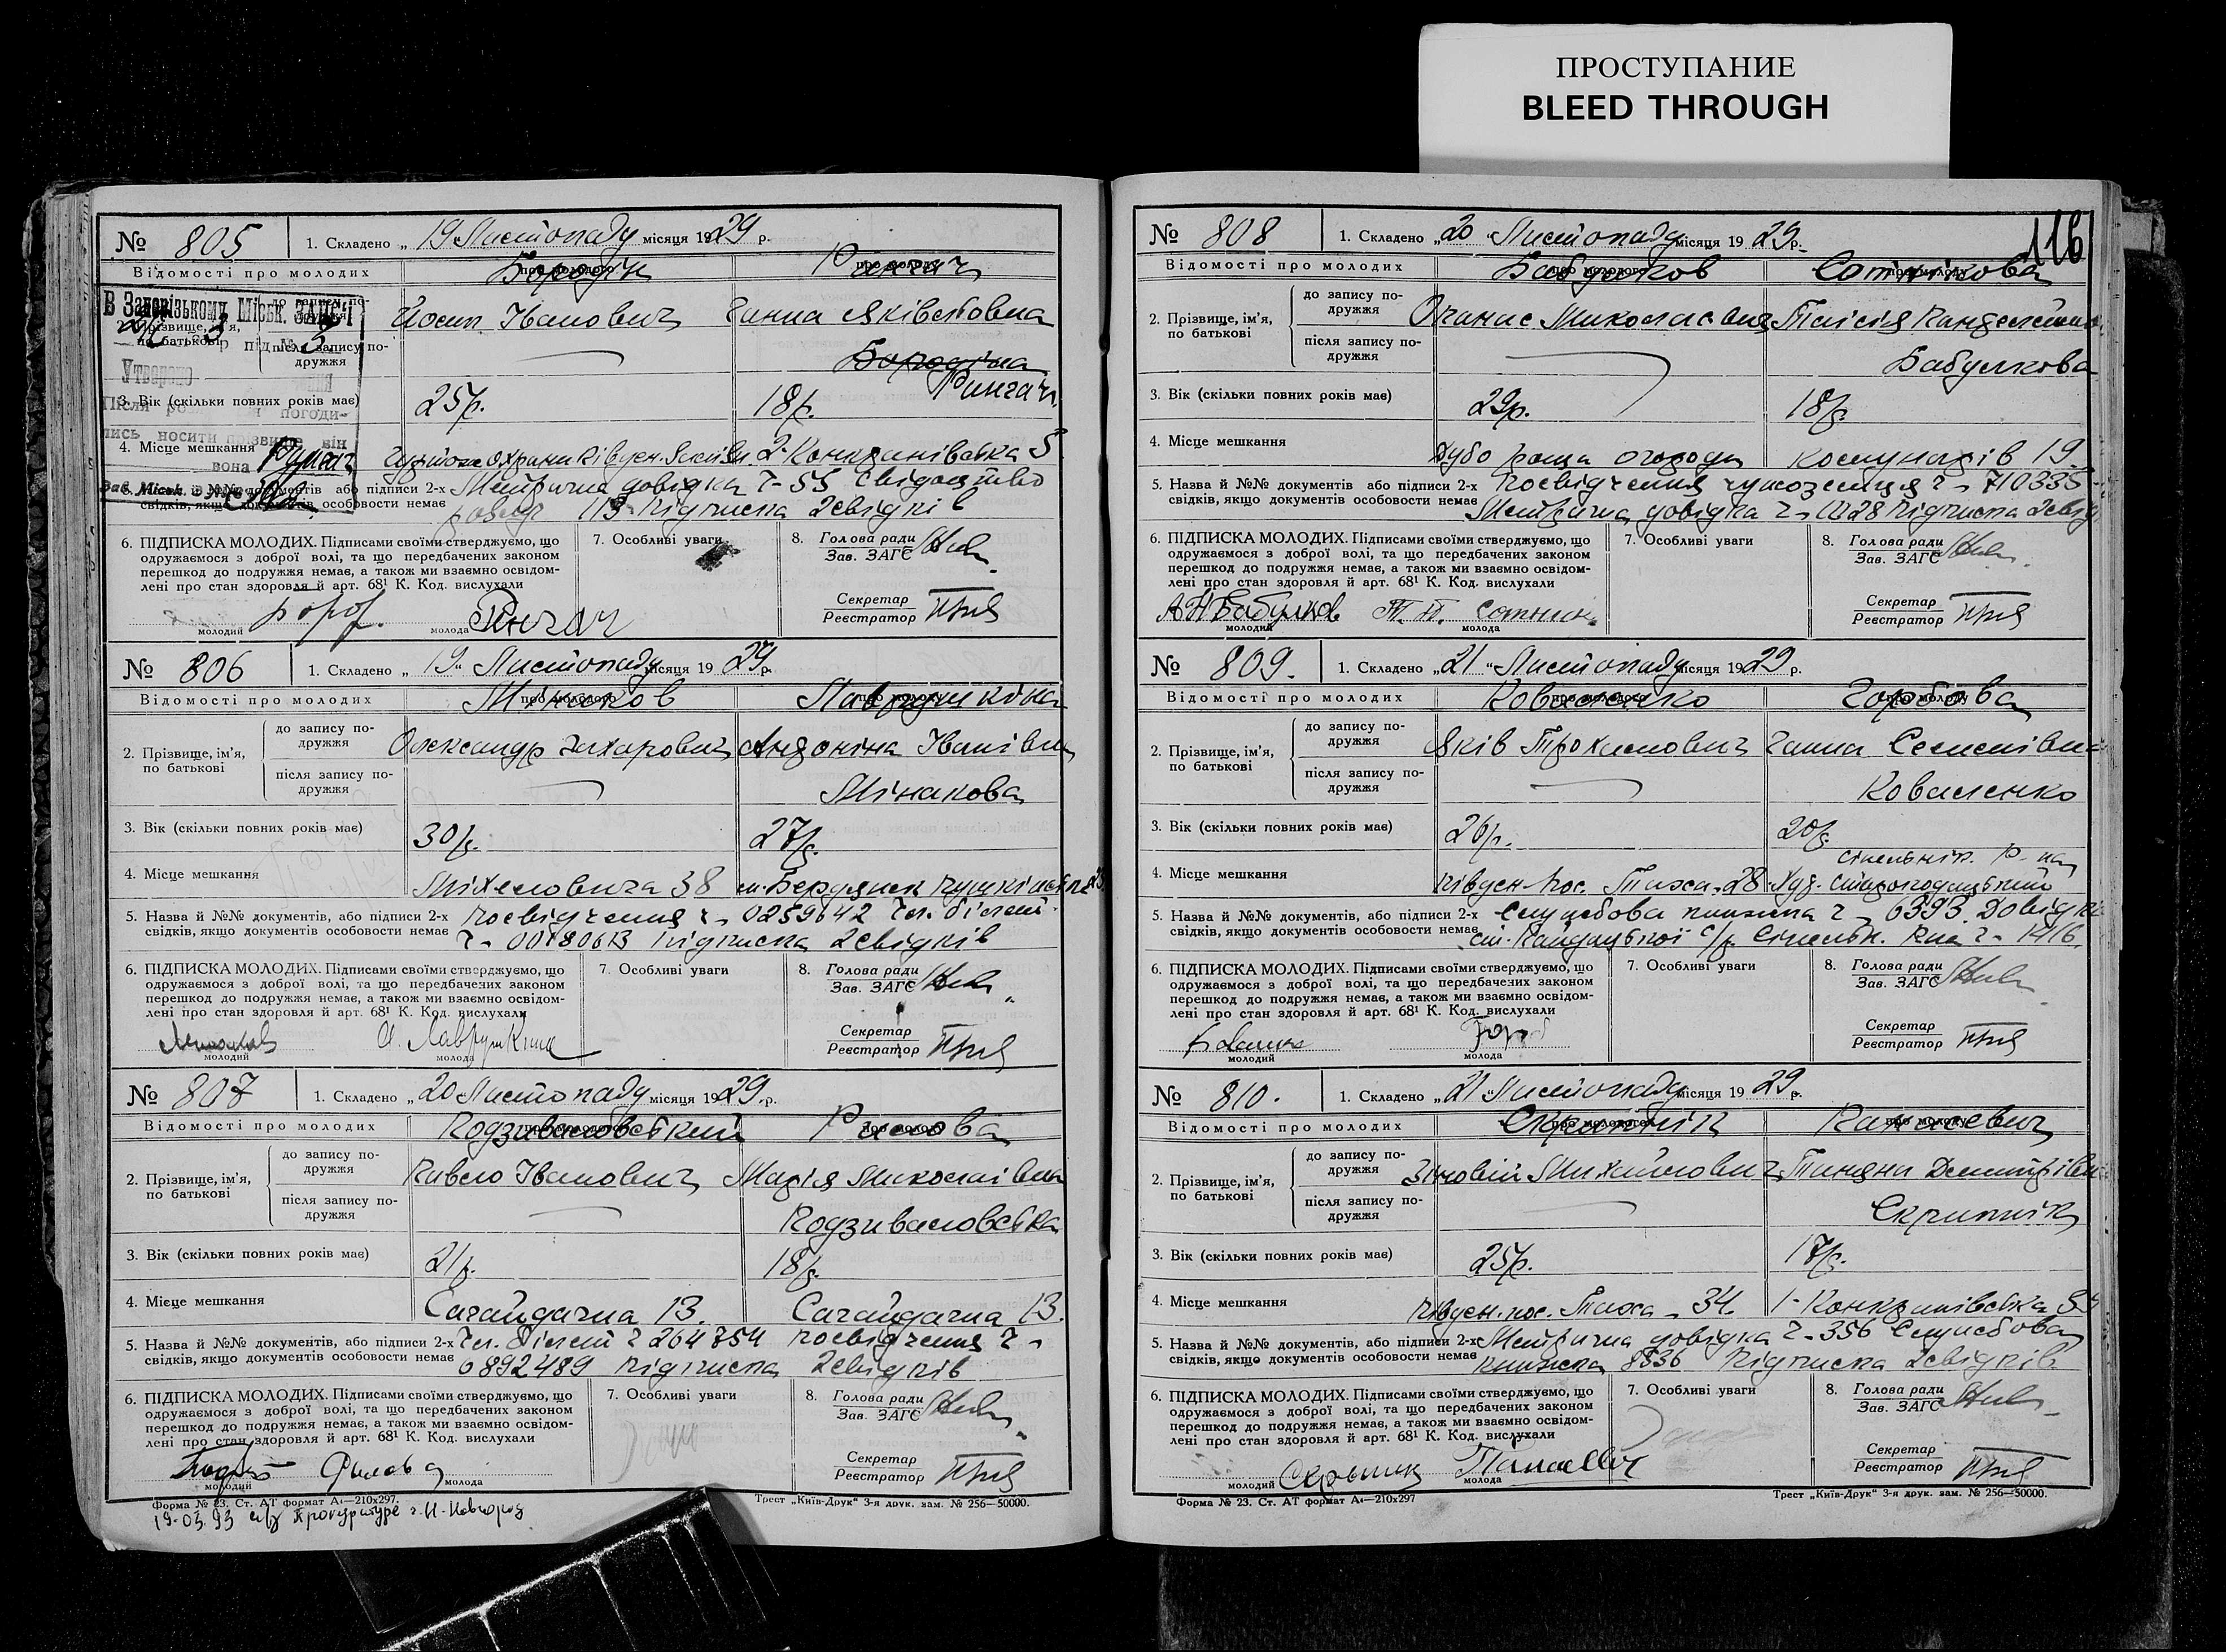 ПРОСТУПАНИЕ
BLEED THROUGH
116
№ 805
1. Складено „ 19 Листопаду місяця 1929 р.
Відомості про молодих
Рингач
В Запорізькому Міськ. ЗАГС'І
2. Прізвище, ім'я, по батькові
до запису по-дружжя
Йосип Іванович
Ганна Яківлівовна
після запису по-дружжя
Бородіна
Рингач
3. Вік (скільки повних років має)
25р.
18р.
4. Місце мешкання
2-Конкринівська 5
5. Назва й №№ документів або підписи 2-х
свідків, якщо документів особовости немає
Метрична довідка ч-55 Свідоцтво
113 підписка 2свідків
6. ПІДПИСКА МОЛОДИХ. Підписами своїми стверджуємо, що
одружаємося з доброї волі, та що передбачених законом
перешкод до подружжя немає, а також ми взаємно освідом-
лені про стан здоровля й арт. 68¹ К. Код. вислухали
молодий
молода Рингач
7. Особливі уваги
8. Голова ради
Зав. ЗАГС
Секретар
Реєстратор
№ 806
1. Складено „ 19 „ Листопаду місяця 1929 р.
Відомості про молодих
Мінаков
Лаврушкіна
2. Прізвище, ім'я, по батькові
до запису по-дружжя
Олександр Захарович
Андоніна Іванівна
після запису по-дружжя
Мінакова
3. Вік (скільки повних років має)
30р.
27р.
4. Місце мешкання
Міхеловича 38
м. Бердянск
5. Назва й №№ документів, або підписи 2-х
свідків, якщо документів особовости немає
посвідчення ч- 0259642 Чл. білет
ч- 00180613 підписка 2свідків
6. ПІДПИСКА МОЛОДИХ. Підписами своїми стверджуємо, що
одружаємося з доброї волі, та що передбачених законом
перешкод до подружжя немає, а також ми взаємно освідом-
лені про стан здоровля й арт. 68¹ К. Код. вислухали
молодий
А. Лаврушкина
молода
7. Особливі уваги
8. Голова ради
Зав. ЗАГС
Секретар
Реєстратор
№ 807
1. Складено „ 20 Листопаду місяця 1929 р.
Відомості про молодих
Подзиваловський
2. Прізвище, ім'я, по батькові
до запису по-дружжя
Павло Іванович
Марія Миколаівна
після запису по-дружжя
Подзиваловська
3. Вік (скільки повних років має)
21р.
18р.
4. Місце мешкання
Сагайдачна 13.
Сагайдачна 13.
5. Назва й №№ документів, або підписи 2-х
свідків, якщо документів особовости немає
Чл. білет ч 264754 посвідчення ч-
0892489 підписка 2свідків
6. ПІДПИСКА МОЛОДИХ. Підписами своїми стверджуємо, що
одружаємося з доброї волі, та що передбачених законом
перешкод до подружжя немає, а також ми взаємно освідом-
лені про стан здоровля й арт. 68¹ К. Код. вислухали
молодий
молода
7. Особливі уваги
8. Голова ради
Зав. ЗАГС
Секретар
Реєстратор
Форма № 23. Ст. АТ формат А₄—210x297.
Трест „Київ-Друк" 3-я друк. зам. № 256—50000.
19.03.93
№ 808
1. Складено „ 20 „ Листопаду місяця 1929 р.
Відомості про молодих
Бабушков
Сотнікова
2. Прізвище, ім'я, по батькові
до запису по-дружжя
Опанас Миколаєвич
Таісія
після запису по-дружжя
Бабушкова
3. Вік (скільки повних років має)
29р.
18р.
4. Місце мешкання
Дубо роща огороди
Комунарів 19.
5. Назва й №№ документів або підписи 2-х
свідків, якщо документів особовости немає
посвідчення чужоземця ч- 710335
Метрична довідка ч- підписка 2свід.
6. ПІДПИСКА МОЛОДИХ. Підписами своїми стверджуємо, що
одружаємося з доброї волі, та що передбачених законом
перешкод до подружжя немає, а також ми взаємно освідом-
лені про стан здоровля й арт. 68¹ К. Код. вислухали
молодий
молода
7. Особливі уваги
8. Голова ради
Зав. ЗАГС
Секретар
Реєстратор
№ 809.
1. Складено „ 21 „ Листопаду місяця 1929 р.
Відомості про молодих
Коваленко
Горбова
2. Прізвище, ім'я, по батькові
до запису по-дружжя
Яків Трохимович
Ганна Семенівна
після запису по-дружжя
Коваленко
3. Вік (скільки повних років має)
26р.
20р.
4. Місце мешкання
Півден. пос. Тиха-28
Сінельнік. р-на
5. Назва й №№ документів, або підписи 2-х
свідків, якщо документів особовости немає
Службова книжка ч- 6393. Довідка
с/р. Сінельн. Р-на ч- 1416.
6. ПІДПИСКА МОЛОДИХ. Підписами своїми стверджуємо, що
одружаємося з доброї волі, та що передбачених законом
перешкод до подружжя немає, а також ми взаємно освідом-
лені про стан здоровля й арт. 68¹ К. Код. вислухали
молодий
молода
7. Особливі уваги
8. Голова ради
Зав. ЗАГС
Секретар
Реєстратор
№ 810.
1. Складено „ 21 Листопаду місяця 1929 р.
Відомості про молодих
Скрипнік
Панасевич
2. Прізвище, ім'я, по батькові
до запису по-дружжя
Зіновій Михайлович
Тиняна Дмитрівна
після запису по-дружжя
Скрипнік
3. Вік (скільки повних років має)
25р.
17р.
4. Місце мешкання
Півден. пос. Тиха - 34.
1-Конкринівська 55
5. Назва й №№ документів, або підписи 2-х
свідків, якщо документів особовости немає
Метрична довідка ч-356 Службова
книжка 8536 підписка 2свідків
6. ПІДПИСКА МОЛОДИХ. Підписами своїми стверджуємо, що
одружаємося з доброї волі, та що передбачених законом
перешкод до подружжя немає, а також ми взаємно освідом-
лені про стан здоровля й арт. 68¹ К. Код. вислухали
молодий
молода
7. Особливі уваги
8. Голова ради
Зав. ЗАГС
Секретар
Реєстратор
Форма № 23. Ст. АТ формат А₄—210x297
Трест „Київ-Друк" 3-я друк. зам. № 256—50000.